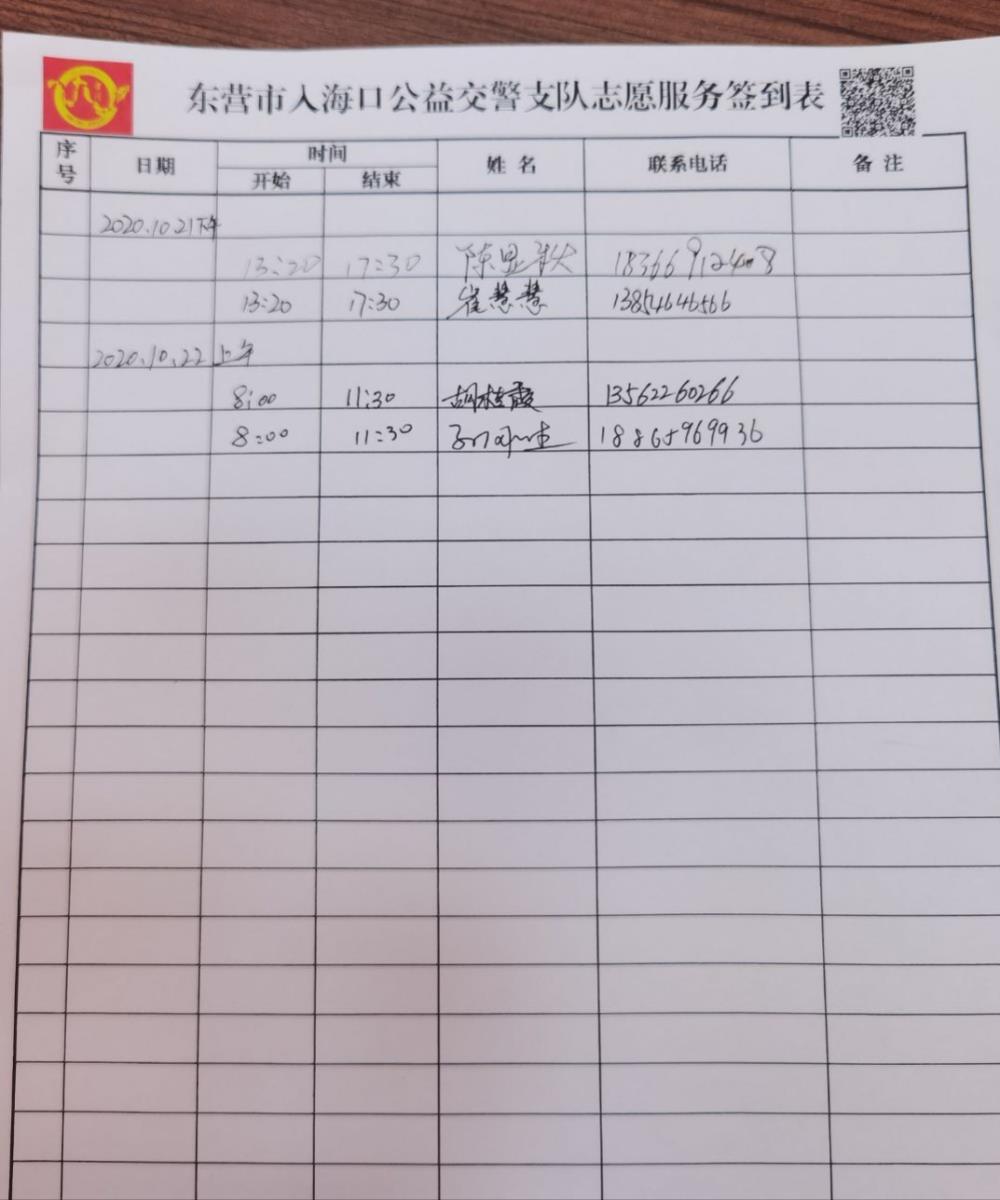 东营市入海口公益交警支队志愿服务签到表
序号 日期 时间 姓名 联系电话 备注
开始 结束
2020.10.21下午
13:20 17:30 陈显
13:20 17:30 崔慧慧 13854646566
2020.10.22 上午
8:00 11:30 胡桂霞 13562260266
8:00 11:30 18865969936